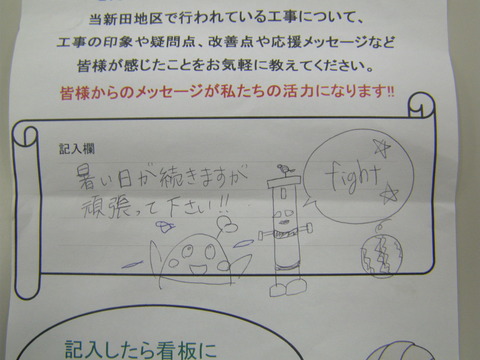 当新田地区で行われている工事について、
工事の印象や疑問点、改善点や応援メッセージなど
皆様が感じたことをお気軽に教えてください。
皆様からのメッセージが私たちの活力になります!!
記入欄
暑い日が続きますが
頑張って下さい!!
fight
記入したら看板に